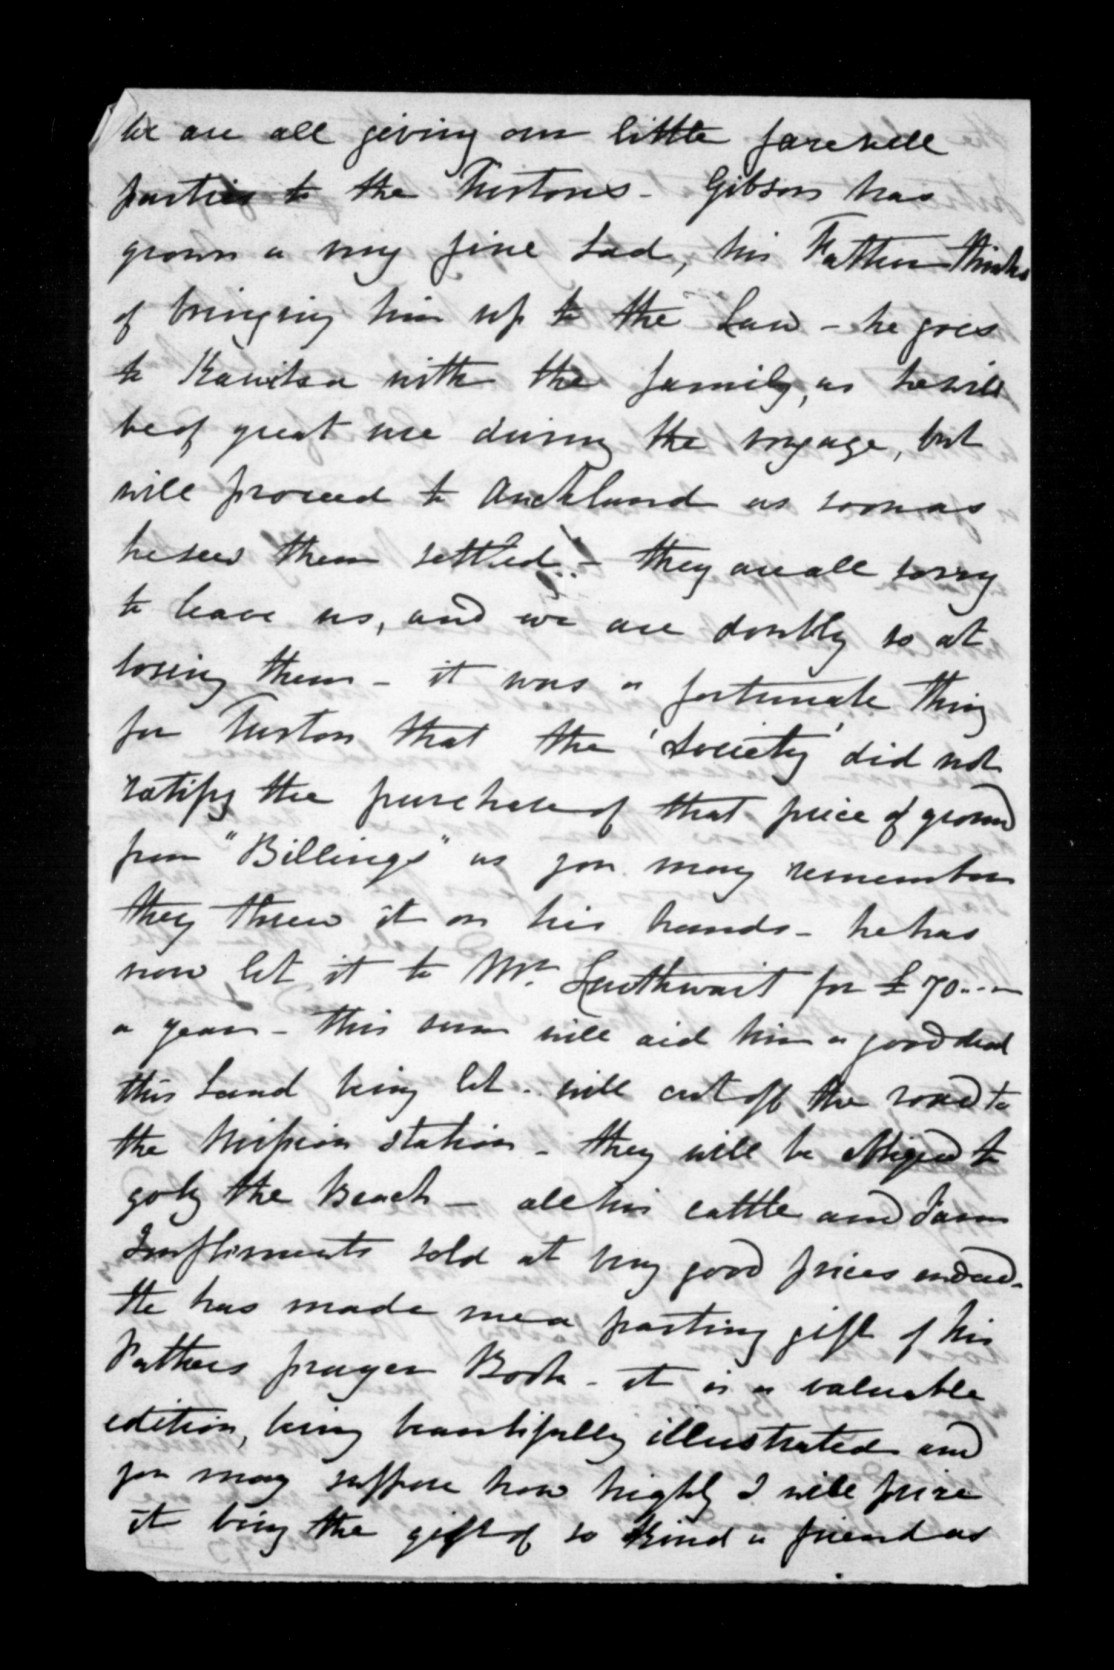 We are all giving our little farewell
parties to the Turtons - Gibson has
grown a very fine Lad, his Father thinks
of bringing him up to the Law - he goes
to Kawhia with the family, as he will
be of great use during the voyage, but
will proceed to Auckland as soon as
he sees them settled - they are all sorry
to leave us, and we are doubly so at
losing them - it was a fortunate thing
for Turton that the 'Society' did not
ratify the purchase of that piece of ground
from "Billings" as you may remember
they threw it on his hands - he has
now let it to Mr. Luthwait for £70..-
a year - this sum will aid him a good deal
this Land being let - will cut off the road to
the Mission station - they will be obliged to
go by the Beach - all his cattle and Farm
Impliments sold at very good prices indeed -
He has made me a parting gift of his
Fathers prayer Book - it is a valuable
edition, being beautifully illustrated and
you may suppose how highly I will prize
it being the gift of so kind a friend as